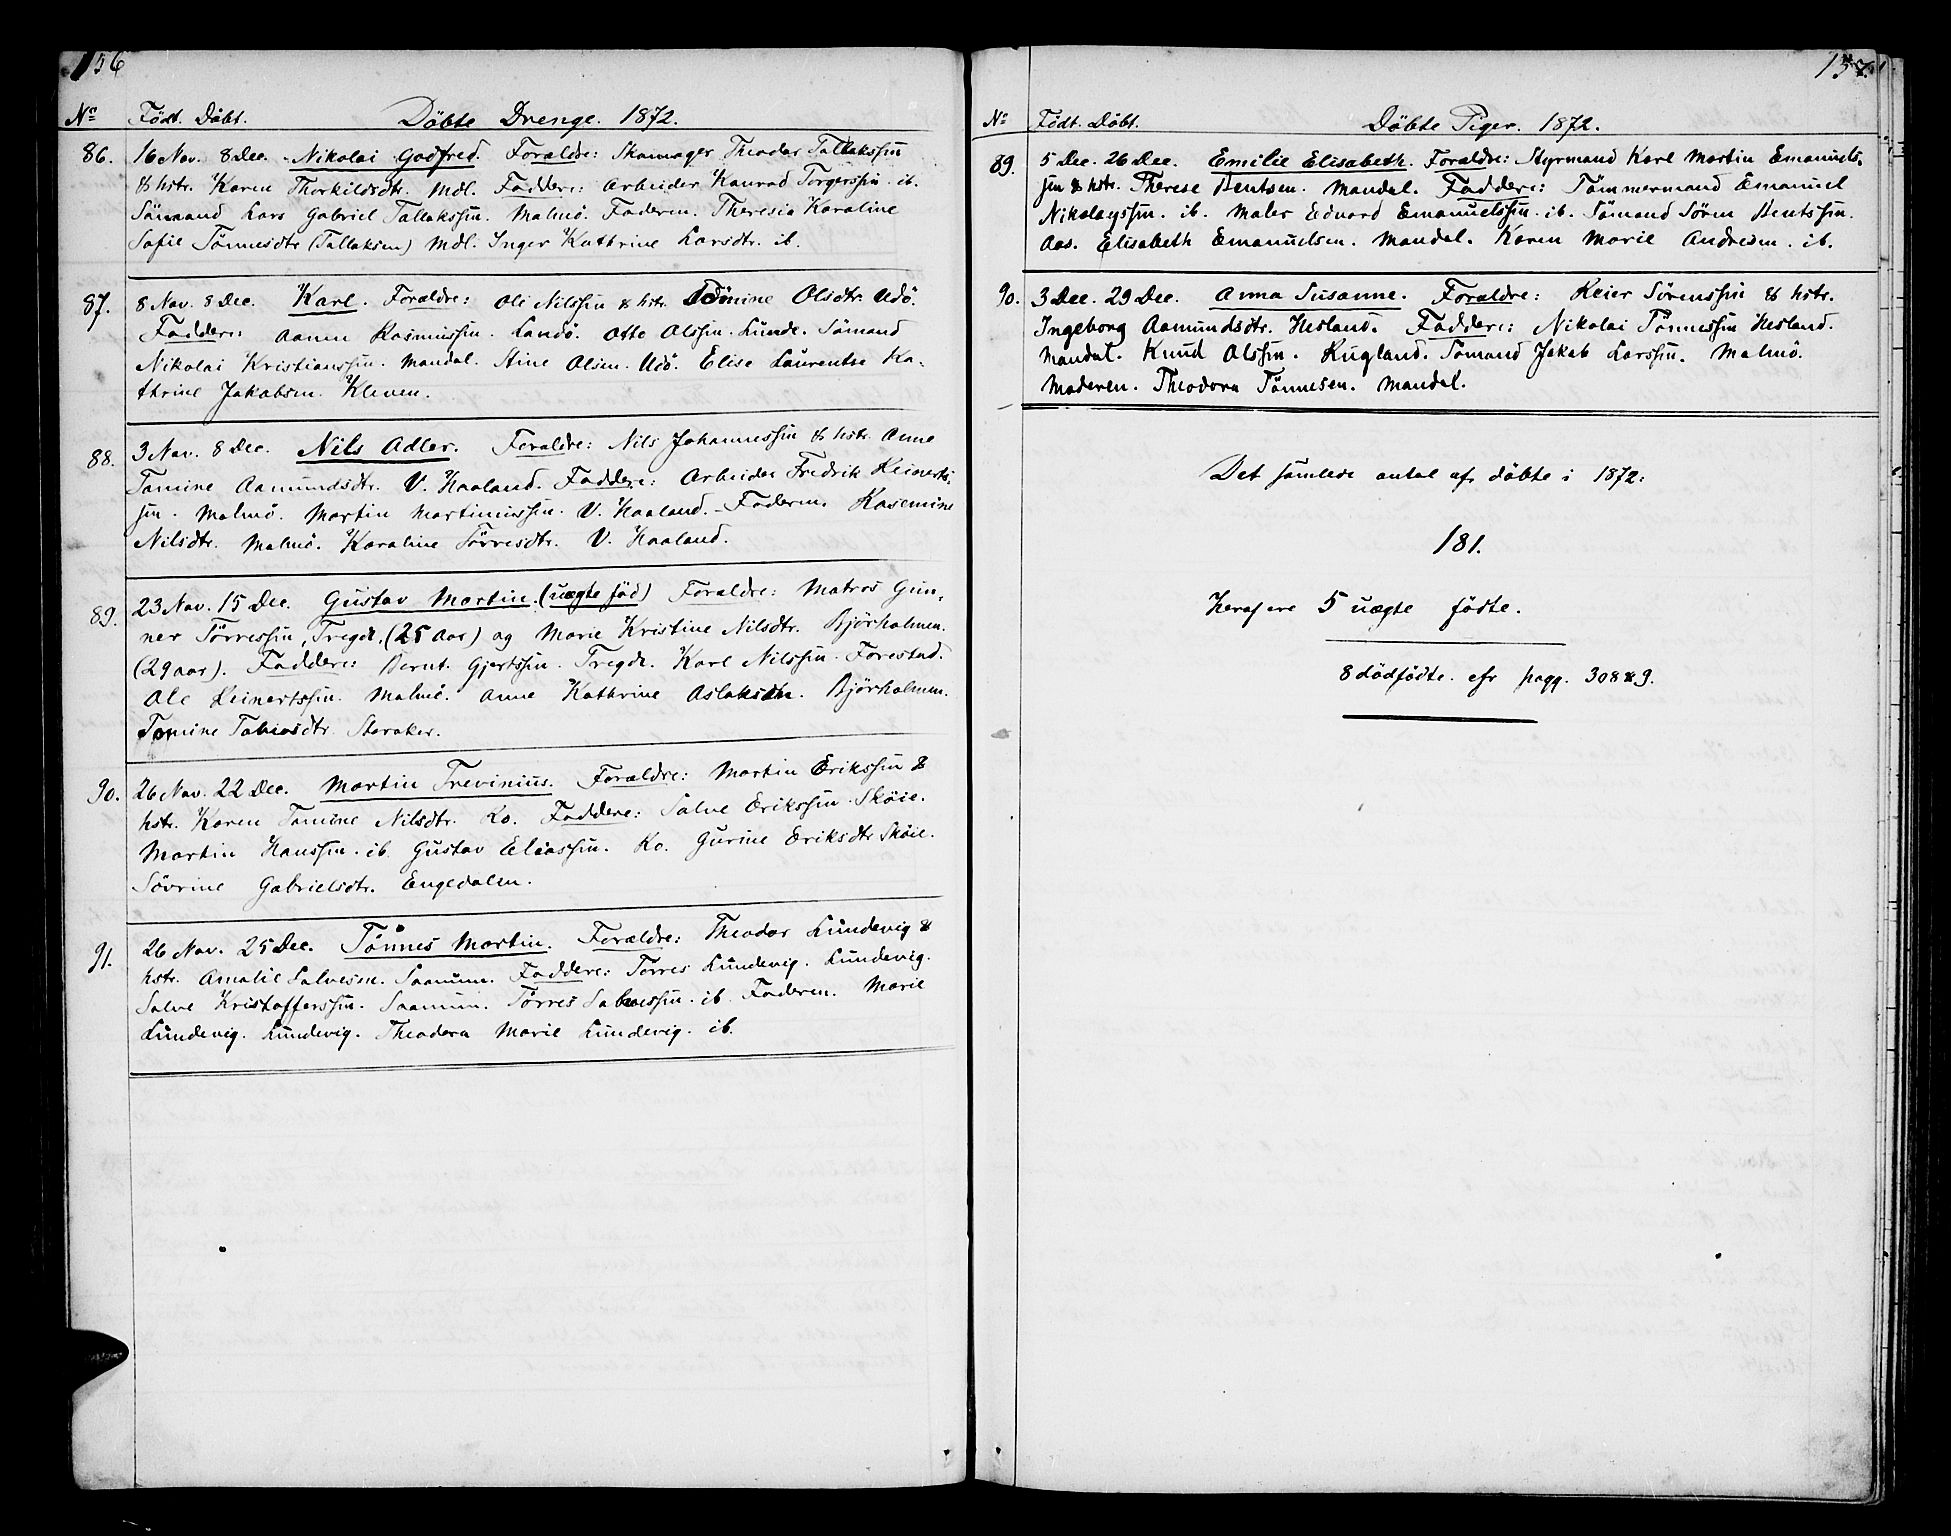 156
No Födt. Döbt. Döbte Drenge. 1872.
86. 16 Nov. 8 Dec. Nikolai Godfred. Forældre: Skomager Theodor Tallakssøn
& hstr. Karen Thorkildsdtr. Mdl. Faddere: Arbeider Konrad Torgerssøn. ib.
Sömand Lars Gabriel Tallakssøn. Malmö. Faderen. Theresia Karoline
Sofie Tönnesdtr (Tallaksen) Mdl. Inger Kathrine Larsdtr. ib.
87. 8 Nov. 8 Dec. Karl. Forældre: Ole Nilssøn & hstr. Tomine Olsdtr. Udö.
Faddere: Aanen Rasmussøn. Landö. Otto Olssøn. Lunde. Sömand
Nikolai Kristianssøn. Mandal. Stine Olsen. Udö. Elise Laurentse Ka-
thrine Jakobsen. Kleven.
88. 3 Nov. 8 Dec. Nils Adler. Forældre: Nils Johannessøn & hstr. Anne
Tomine Aamundsdtr. V. Haaland. Faddere: Arbeider Fredrik Reinerts-
søn. Malmö. Martin Martinussøn. V. Haaland. Faderen. Rasemine
Nilsdtr. Malmö. Karoline Törresdtr. V. Haaland.
89. 23 Nov. 15 Dec. Gustav Martin. (uægte föd) Forældre: Matros Gun-
ner Törressøn, Tregde, (25 aar) og Marie Kristine Nilsdtr. Björholmen.
(29 aar). Faddere: Bernt Gjertssøn. Tregde. Karl Nilssøn. Forestad.
Ole Reinertssøn. Malmö. Anne Kathrine Aslaksdtr. Björholmen.
Tomine Tobiasdtr. Storaker.
90. 26 Nov. 22 Dec. Martin Trevinius. Forældre: Martin Erikssøn &
hstr. Karen Tomine Nilsdtr. Ro. Faddere: Salve Erikssøn. Sköie.
Martin Hanssøn. ib. Gustav Eliassøn. Ro. Gurine Eriksdtr. Sköie.
Sövrine Gabrielsdtr. Engedalen.
91. 26 Nov. 25 Dec. Tönnes Martin. Forældre: Theodor Lundevig &
hstr. Amalie Salvesen. Saanum. Faddere: Törres Lundevig. Lundevig.
Salve Kristofferssøn. Saanum. Törres Salvessøn. ib. Faderen. Marie
Lundevig. Lundevig. Theodora Marie Lundevig. ib.
157.
No Födt. Döbt. Döbte Piger. 1872.
89. 5 Dec. 26 Dec. Emilie Elisabeth. Forældre: Styrmand Karl Martin Emanuels-
søn & hstr. Therese Bentsen. Mandal. Faddere: Tömmermand Emanuel
Nikolayssøn. ib. Maler Edvard Emanuelssøn. ib. Sömand Sören Bentssøn.
Aas. Elisabeth Emanuelsen. Mandal. Karen Marie Andresen. ib.
90. 3 Dec. 29 Dec. Anna Susanne. Forældre: Reier Sörenssøn & hstr.
Ingeborg Aamundsdtr. Hesland. Faddere: Nikolai Tönnessøn Hesland.
Mandal. Knud Olssøn. Rugland. Sömand Jakob Larssøn. Malmö.
Moderen. Theodora Tönnesen. Mandal.
Det samlede antal af döbte i 1872:
181.
Heraf ere 5 uægte födte.
8 dödfödte. cfr pagg. 308 & 9.